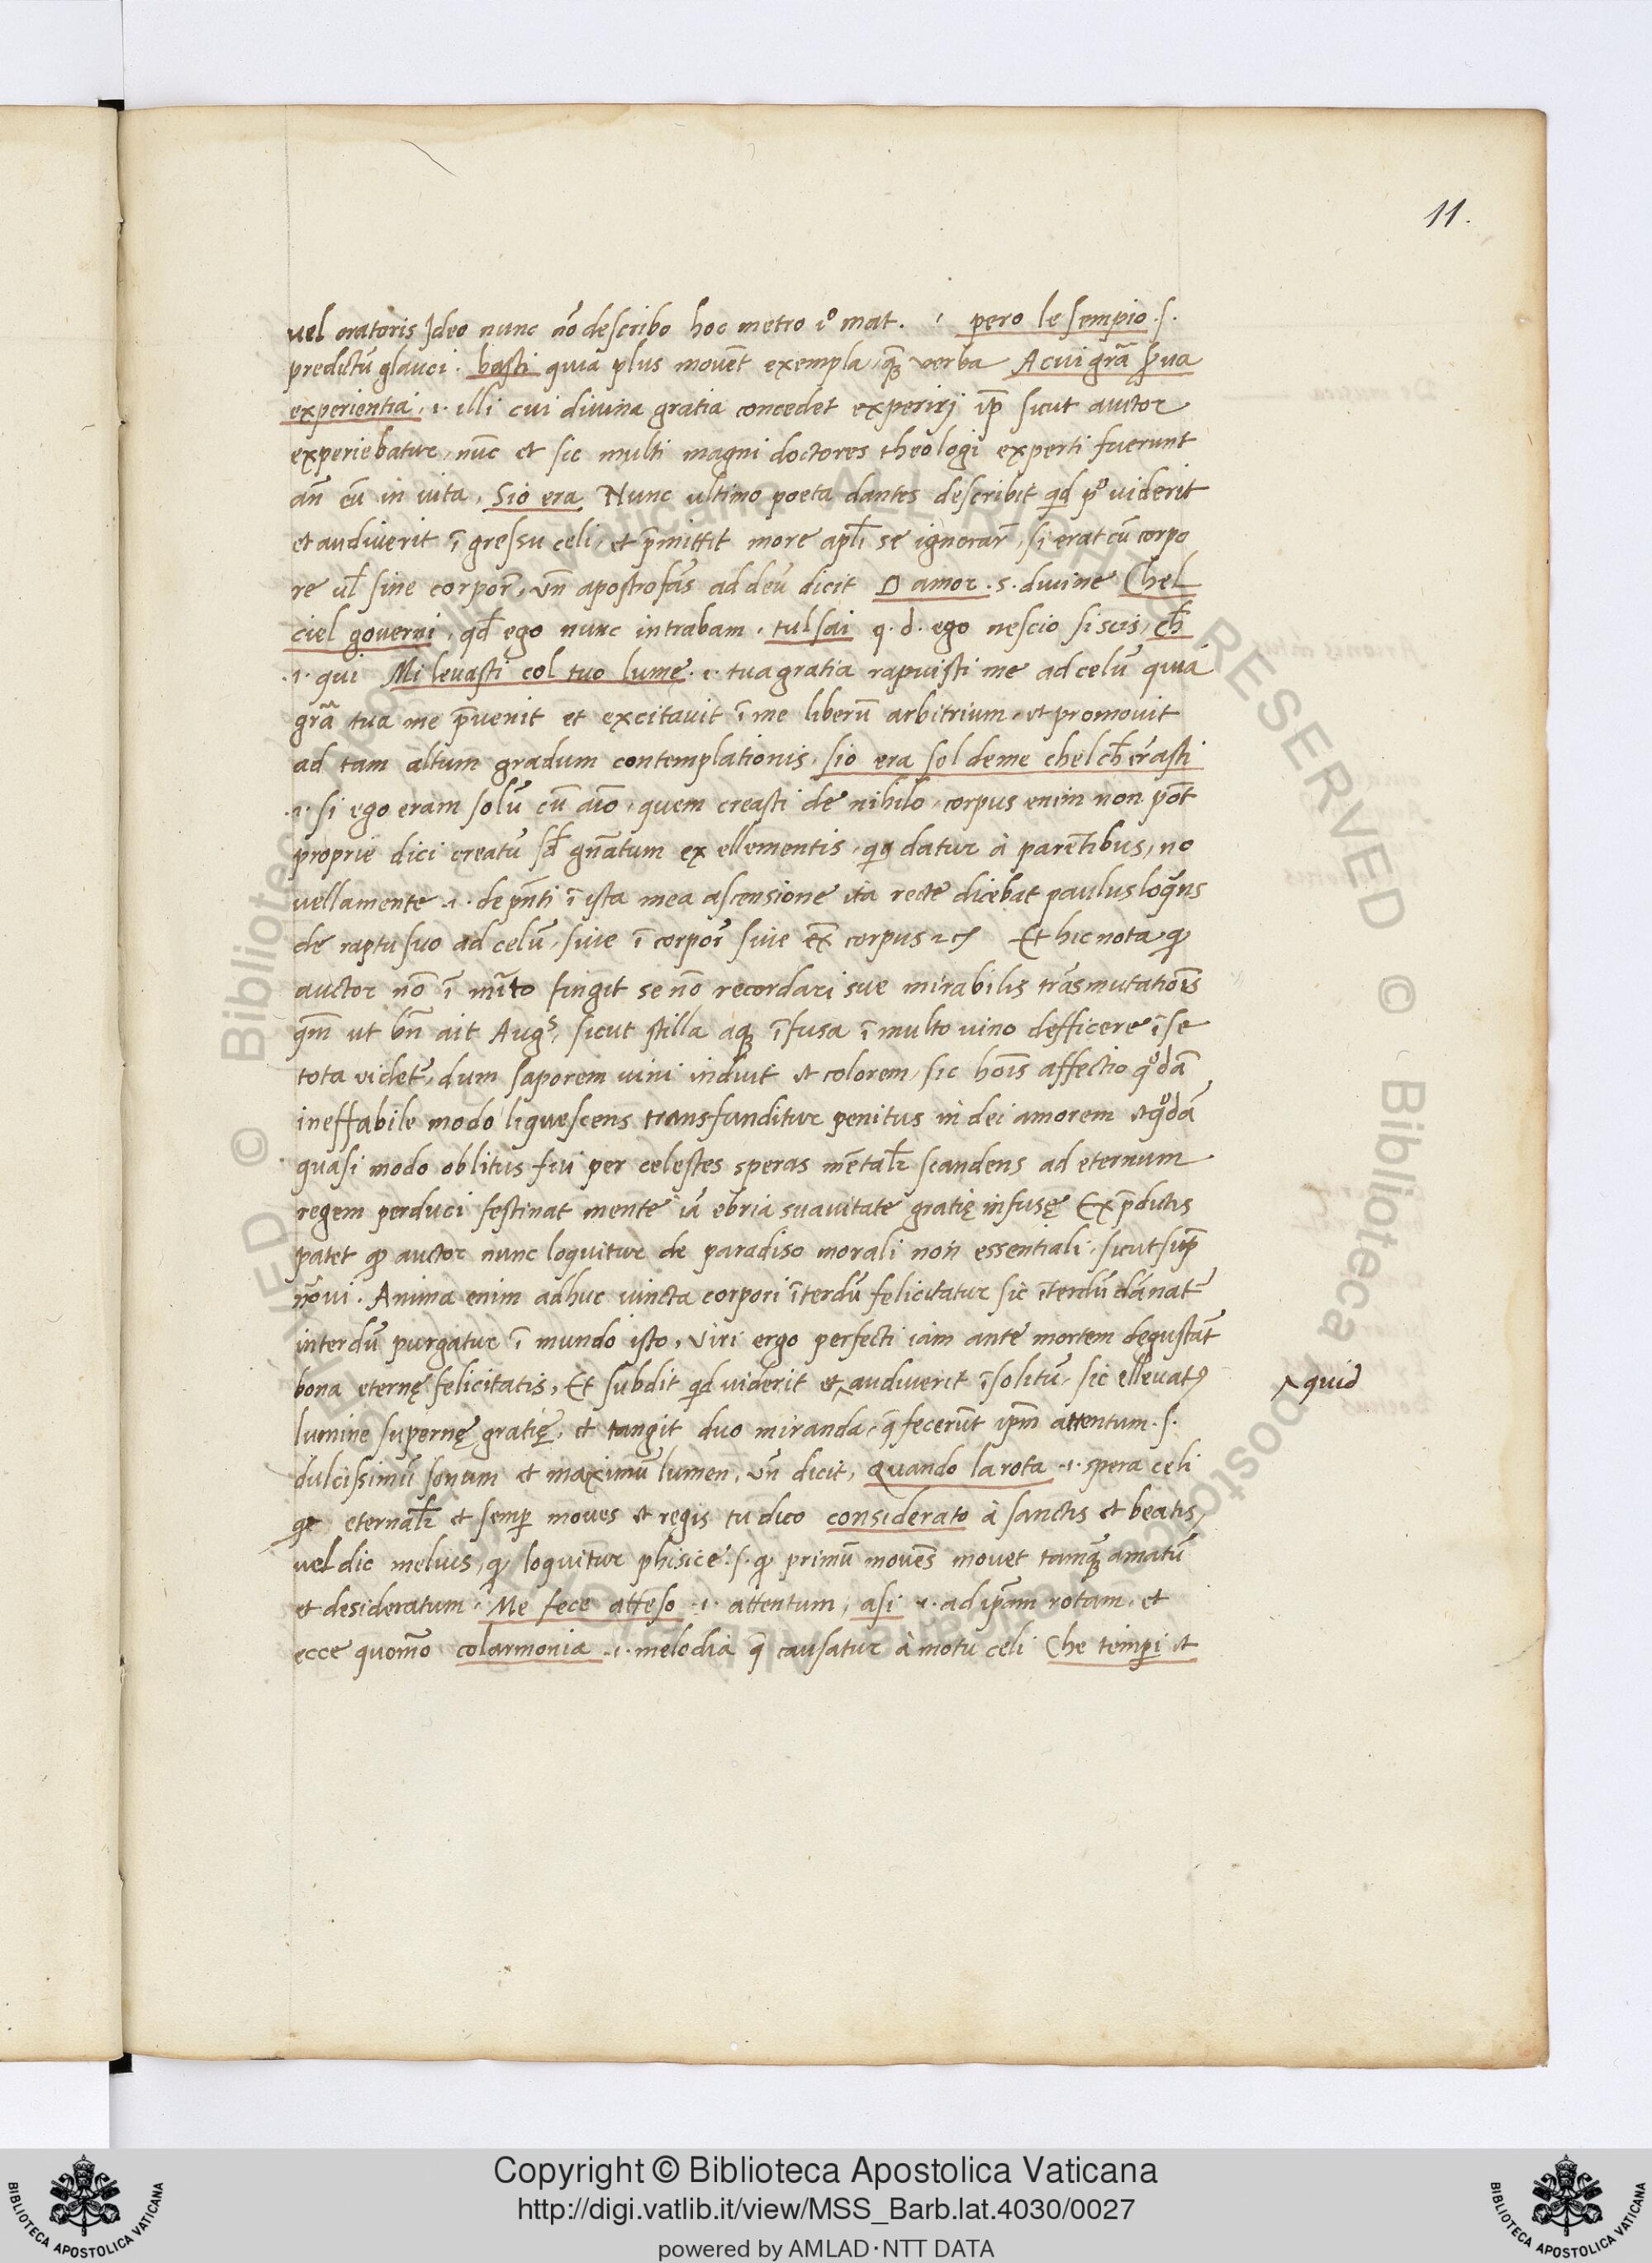 11.
vel oratoris Ideo nunc nõ describo hoc metro iº mat. pero le sempio .s.
predictũ glauci . basti quia plus movẽt exempla, quã verba A cui grã ꝑva
experientia .i. illi cui divina gratia concedet experirj ip̃ sicut auctor
experiebatur, nũc et sic multi magni doctores theologi experti fuerunt
añ cũ in vita, Sio era Nunc ultimo poeta dantes describit qd pº viderit
et audiverit ĩ gressu celi, et p̃mittit more apl̃i se ignorar̃, si erat cũ corpo
re vl̃ sine corpor̃, vñ apostrofãs ad deũ dicit O amor .s. divine Chel
ciel governi, qd̃ ego nunc intrabam . tul sai q. d. ego nescio si scis, ch̃
.i. qui Mi levasti col tuo lumę .i. tua gratia rapuisti me ad celũ quia
grã tua me p̃venit et excitavit ĩ me liberũ arbitrium, et promovit
ad tam altum gradum contemplationis, sio era sol deme chel ch̃ erasti
.i. si ego eram solũ cũ aĩo, quem creasti de nihilo, corpus enim non põt
proprie dici creatũ sd̃ gñatum ex ellementis, qꝫ datur à parẽtibus, no
vellamente .i. de pñti ĩ ista mea ascensione ita recte dicebat paulus loq̃ns
de raptu suo ad celũ, sive ĩ corpor̃ sive ex̃ corpus ⁊cꝫ Et hic nota ꝙ
auctor nõ ĩ mĩto fingit se nõ recordari sue mirabilis trãsmutatiõis
qm̃ ut bñ ait Augˢ, sicut stilla aqꝫ ĩfusa ĩ multo vino defficere ĩ se
tota videt᷑, dum saporem vini induit et colorem, sic hoĩs affectio qºdã
ineffabile modo liquescens transfunditur penitus in dei amorem et qºdã
quasi modo oblitus sui per celestes speras mẽtalr̃ scandens ad eternum
regem perduci festinat mente iã ebria suavitate gratię infusę Ex p̃dictis
patet ꝙ auctor nunc loquitur de paradiso morali non essentiali, sicut sup̃
nõvi. Anima enim adhuc iuncta corpori ĩterdũ felicitatur sic ĩterdũ dãnat᷑
interdũ purgatur ĩ mundo isto, Viri ergo perfecti iam ante mortem degustãt
bona eternę felicitatis, Et subdit qd viderit et ‸ audiverit ĩsolitũ, sic ellevatꝰ
‸ quid
lumine supernę gratię, et tangit duo miranda, q̃ fecerũt ipm̃ attentum .s.
dulcissimũ sonum et maximũ lumen, vñ dicit, Quando la rota .i. spera celi
qᵉ eternalr̃ et semp̃ moves et regis tu dico considerato à sanctis et beatis,
vel dic melius, ꝙ loquitur phisice .s. ꝙ primũ movẽs movet tamqꝫ amatũ
et desideratum. Me fece atteso .i. attentum, asi .i. ad ipãm rotam, et
ecce quomõ colarmonia .i. melodia q̃ causatur à motu celi Che tempi et
Copyright © Biblioteca Apostolica Vaticana
http://digi.vatlib.it/view/MSS_Barb.lat.4030/0027
powered by AMLAD·NTT DATA